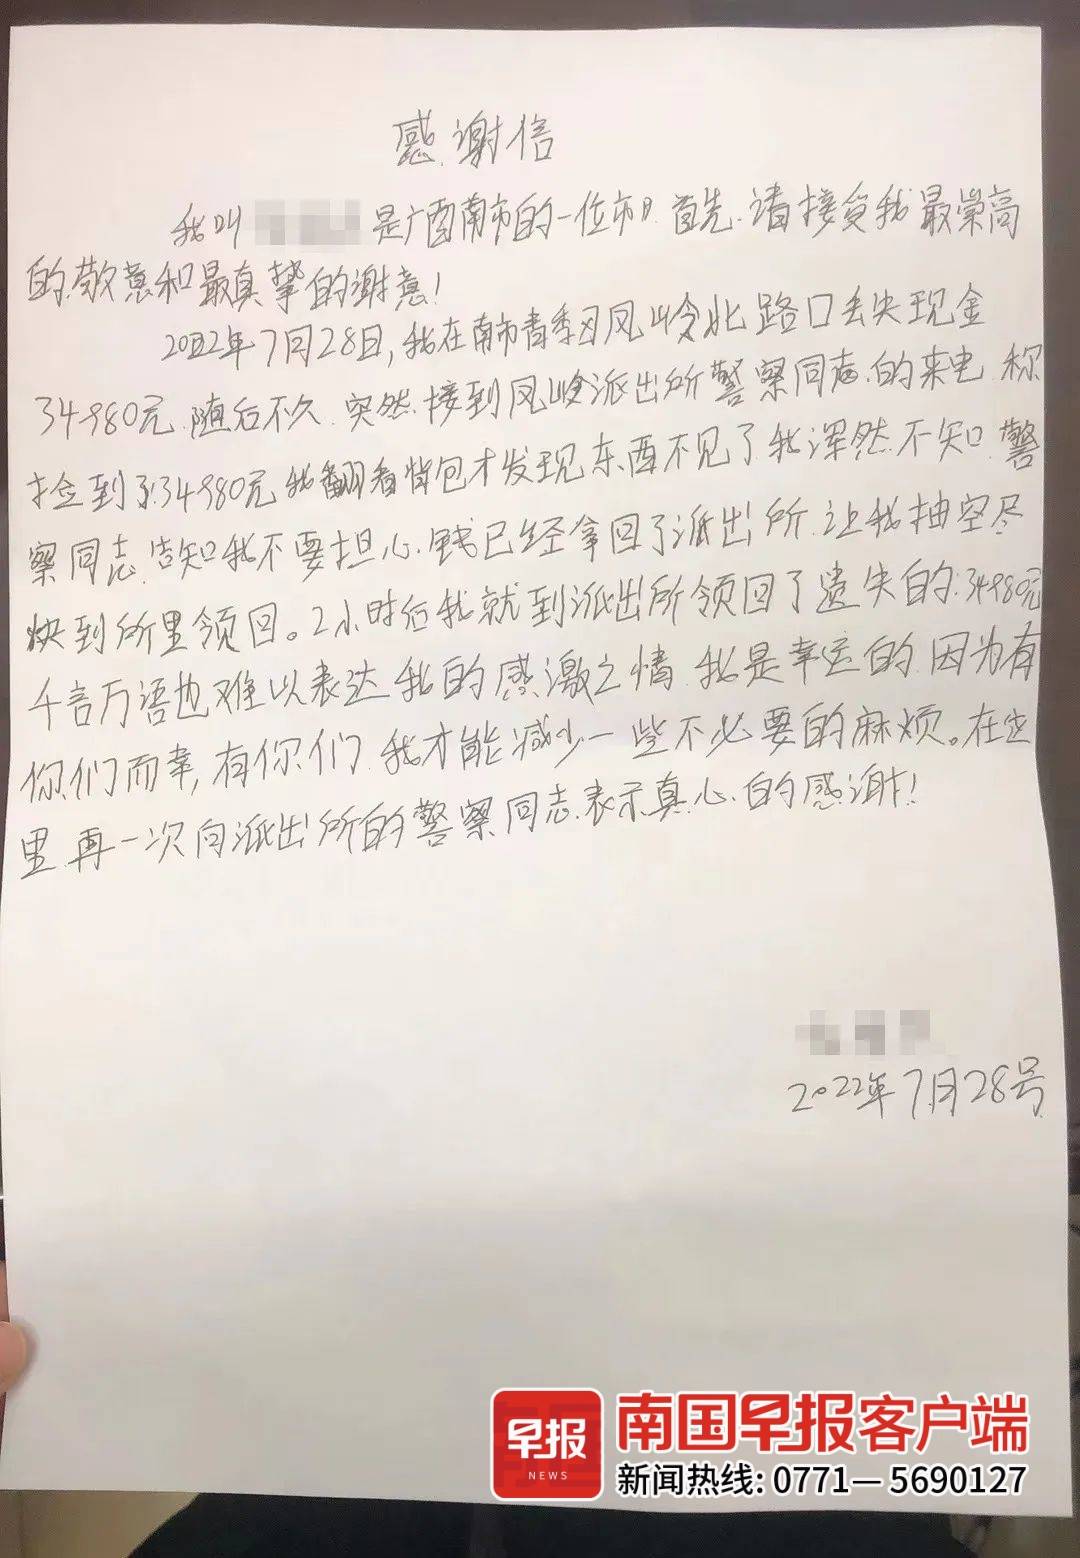 感谢信
我叫 是广西南市的一位市民 首先.请接受我最崇高
的敬意和最真挚的谢意!
2022年7月28日,我在南市青季习凤岭北路口丢失现金
34980元.随后不久.突然.接到凤岭派出所警察同志.的来电.称
捡到了34980元我翻看背包才发现东西不见了我浑然不知.警
察同志.告知我不要担心.钱已经拿回了派出所.让我抽空尽
快到所里领回。2小时后我就到派出所领回了遗失的:34980元
千言万语也难以表达我的感激之情.我是幸运的.因为有
你们而幸,有你们.我才能减少一些不必要的麻烦。在这
里.再一次向派出所的警察同志.表示真心.的感谢!
2022年7月28号
早报
NEWS
南国早报客户端
新闻热线: 0771—5690127